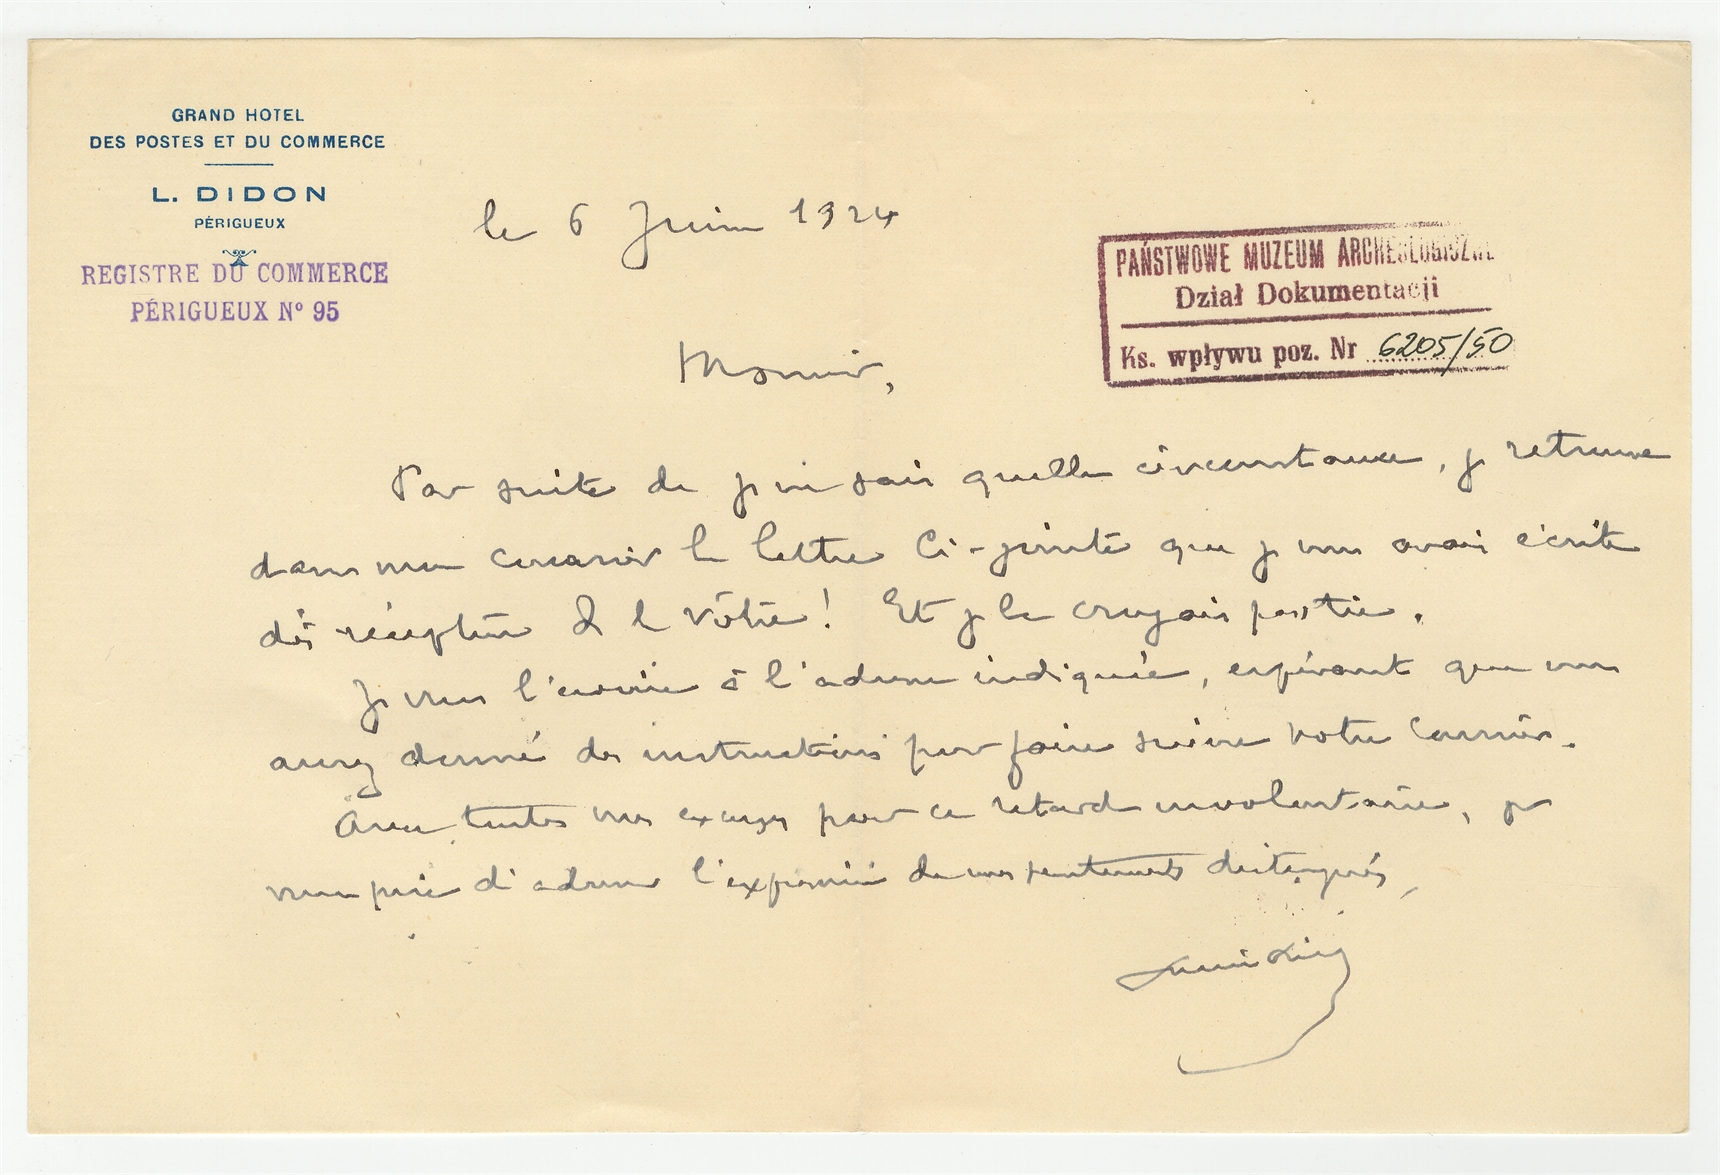 GRAND HOTEL
DES POSTES ET DU COMMERCE
L. DIDON
PÉRIGUEUX
REGISTRE DU COMMERCE
PÉRIGUEUX Nº 95
le 6 Juin 1924
PAŃSTWOWE MUZEUM ARCHEOLOGICZNE
Dział Dokumentacji
Ks. wpływu poz. Nr 6205/50
Monsieur,
Par suite de je ne sais quelle circonstance, je retrouve
dans mon courrier la lettre ci-jointe que je vous avais écrite
dès réception de la vôtre! Et je la croyais partie.
Je vous l'envoie à l'adresse indiquée, espérant que vous
aurez donné des instructions pour faire suivre votre courrier.
Avec toutes mes excuses pour ce retard involontaire, je
vous prie d'adresser l'expression de mes sentiments distingués,